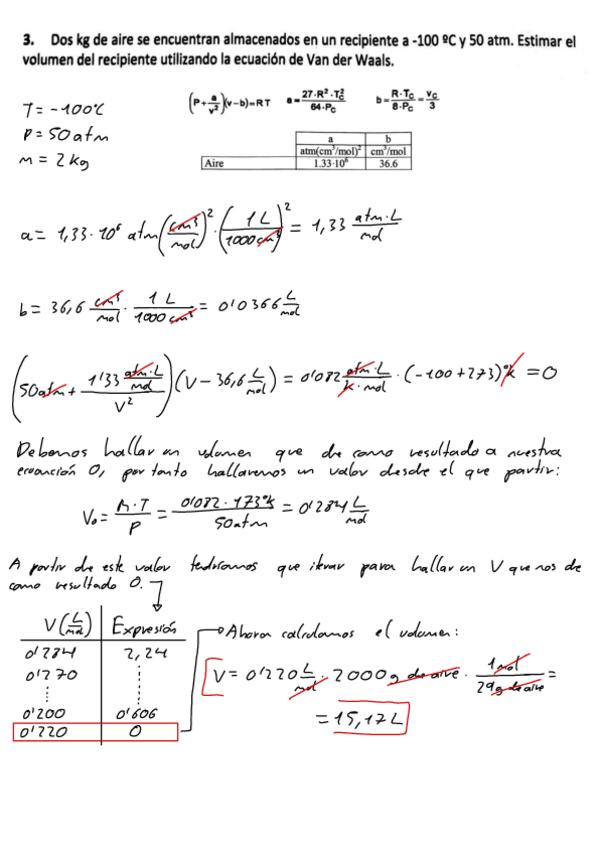 3. Dos kg de aire se encuentran almacenados en un recipiente a -100 ºC y 50 atm. Estimar el
volumen del recipiente utilizando la ecuación de Van der Waals.
T = -100ºC
P = 50 atm
m = 2 kg
(P+a/v²)(v-b)=RT a=27·R²·T_C²/64·P_C b=R·T_C/8·P_C=v_C/3
a b
atm(cm³/mol)² cm³/mol
Aire 1.33·10⁶ 36.6
a = 1,33·10⁶ atm(cm³/mol)²·(1 L/1000 cm³)² = 1,33 atm·L/mol
b = 36,6 cm³/mol · 1 L/1000 cm³ = 0'0366 L/mol
(50atm + 1'33 atm·L/mol / V²)(V - 36,6 L/mol) = 0'082 atm·L/K·mol · (-100+273)ºK = 0
Debemos hallar un volumen que de como resultado a nuestra
ecuación 0, por tanto hallaremos un valor desde el que partir:
V₀ = R·T/P = 0'082·173ºK/50atm = 0'284 L/mol
A partir de este valor tendríamos que iterar para hallar un V que nos de
como resultado 0.
V(L/mol) Expresión
0'284 2,24
0'270
0'200 0'606
0'220 0
Ahora calculamos el volumen:
V = 0'220 L/mol · 2000 g de aire · 1 mol/29 g de aire =
= 15,17 L